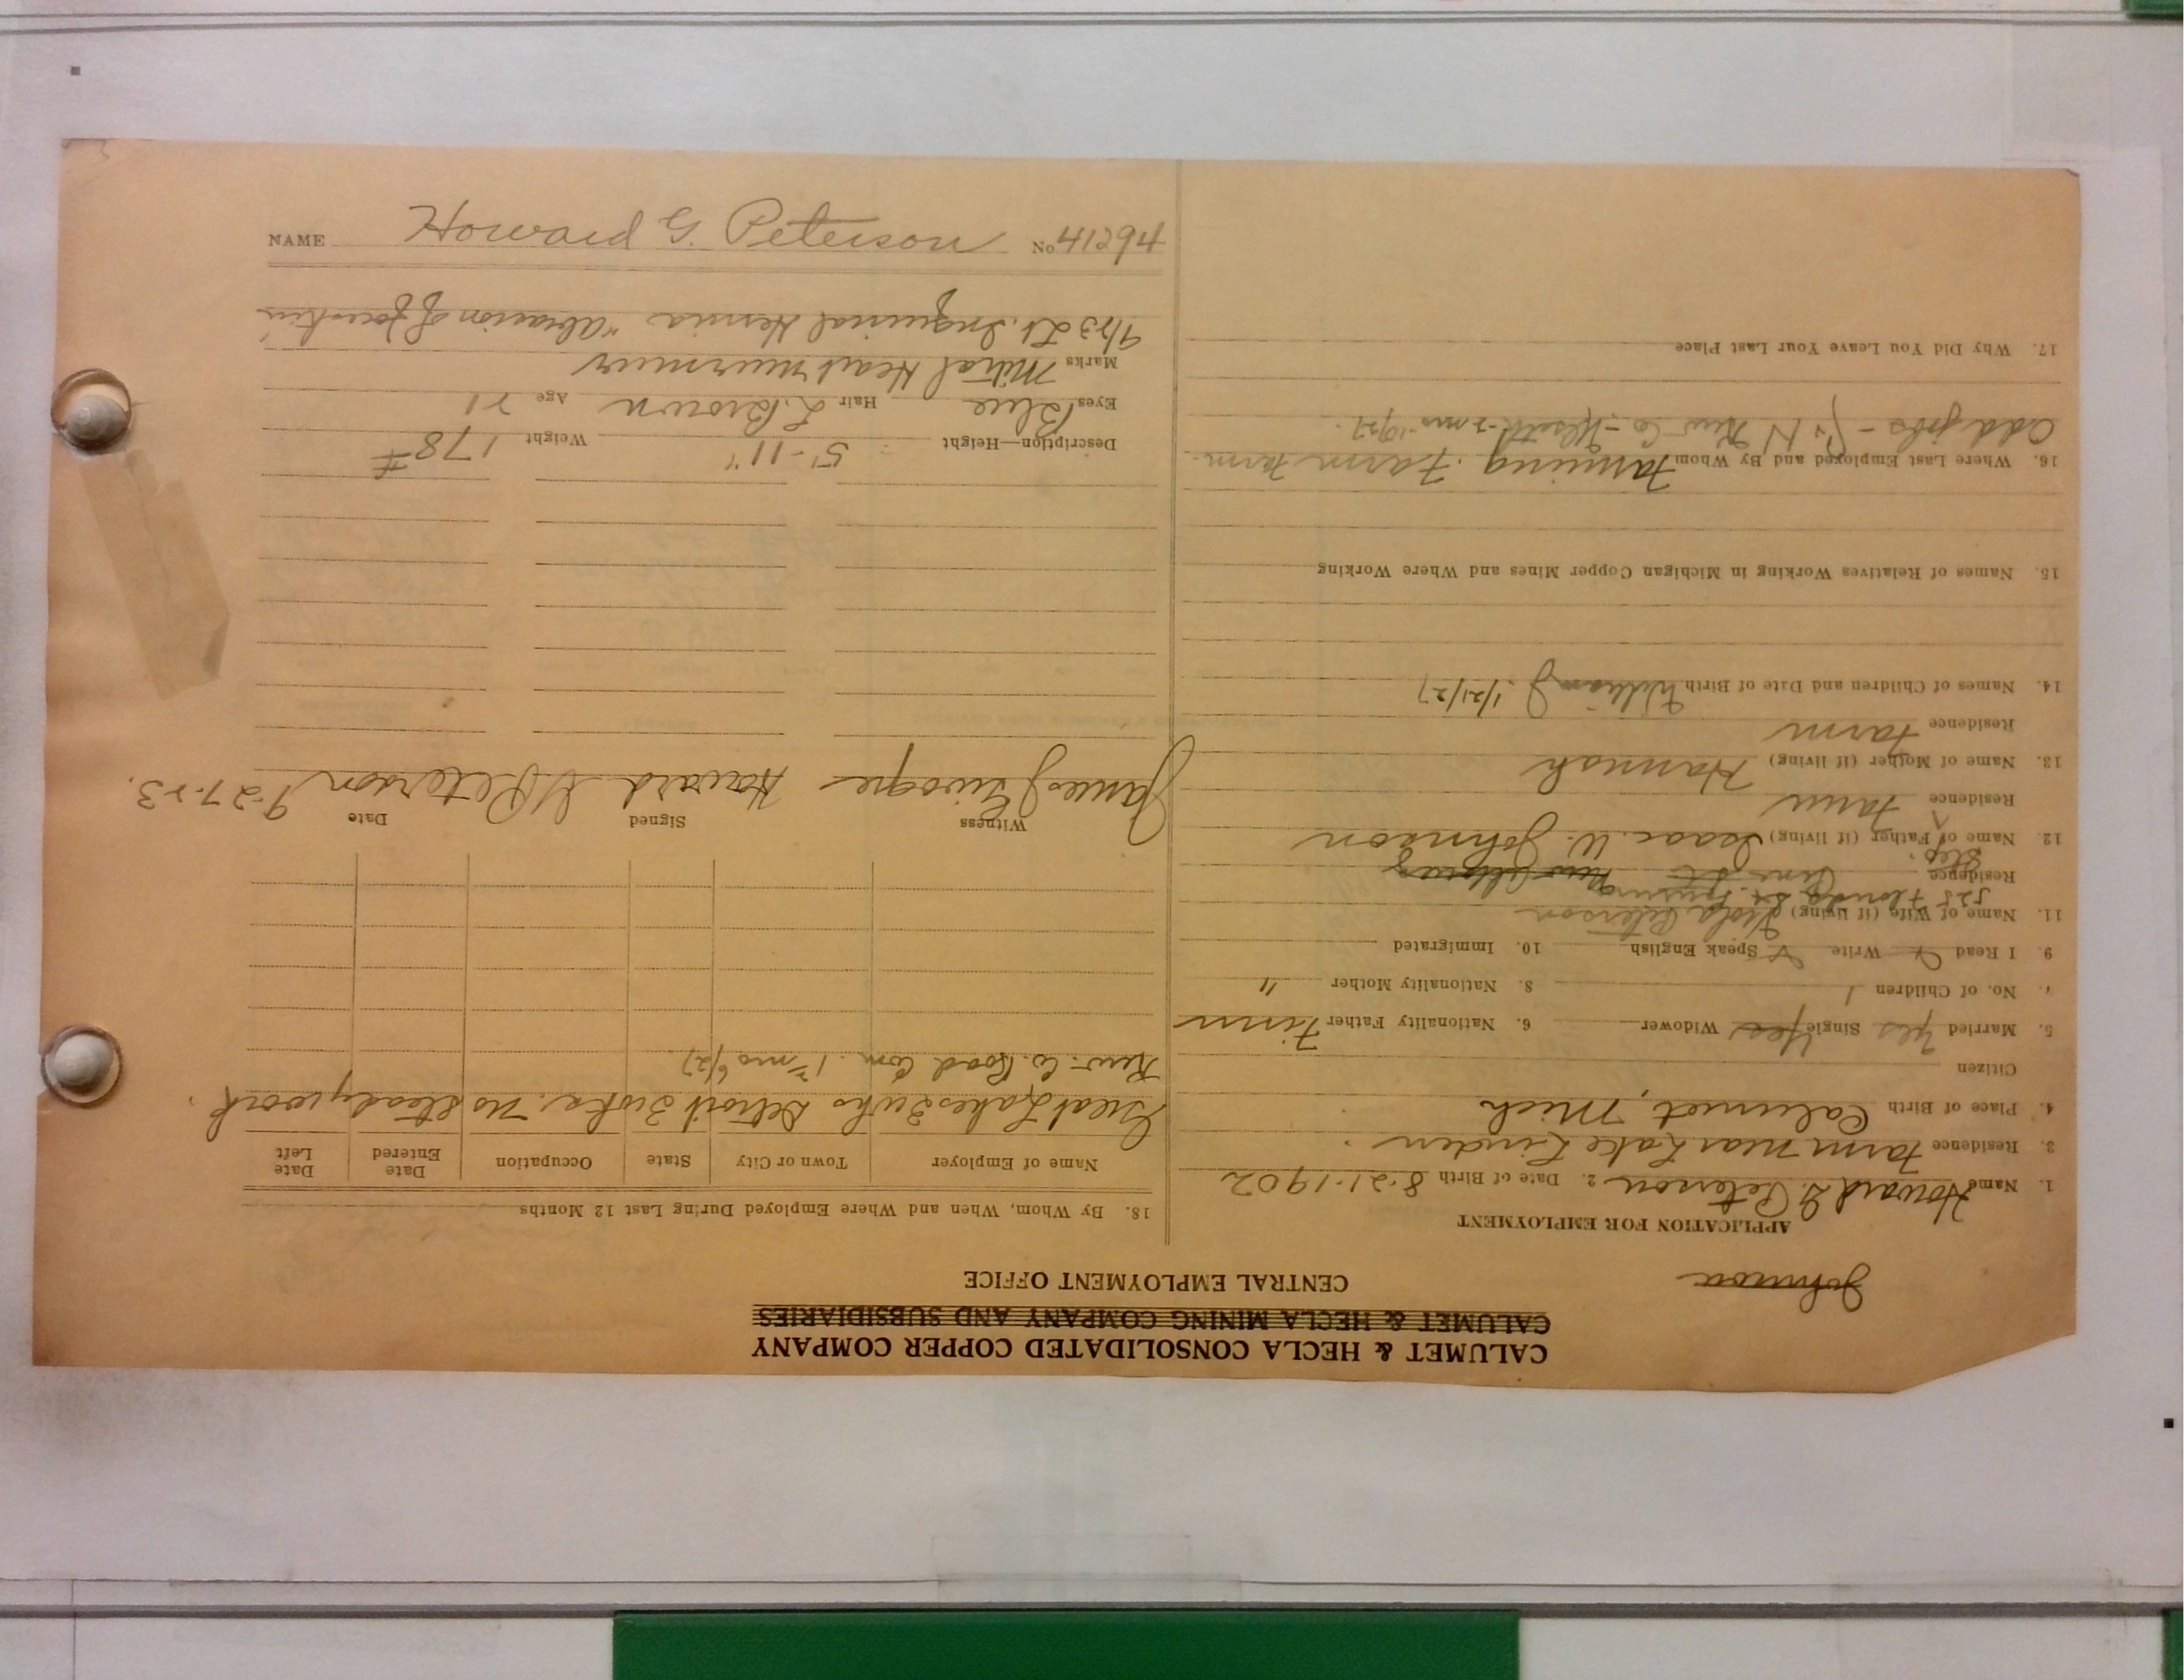 CALUMET & HECLA CONSOLIDATED COPPER COMPANY
CALUMET & HECLA MINING COMPANY AND SUBSIDIARIES
CENTRAL EMPLOYMENT OFFICE
Johnson
APPLICATION FOR EMPLOYMENT
1. Name Howard G. Peterson 2. Date of Birth 8-21-1902
3. Residence Farm near Lake Linden
4. Place of Birth Calumet, Mich
Citizen
5. Married Yes Single Yes Widower 6. Nationality Father Finn
7. No. of Children 1 8. Nationality Mother "
9. I Read Write Speak English 10. Immigrated
11. Name of Wife (if living) Viola Peterson
525 Florida St. Laurium
Residence Pine St
Step
12. Name of Father (if living) Isaac W. Johnson
Residence Farm
13. Name of Mother (if living) Hannah
Residence Farm
14. Names of Children and Date of Birth William J. 1/21/27
15. Names of Relatives Working in Michigan Copper Mines and Where Working
16. Where Last Employed and By Whom Farming. Farm Farm.
Odd jobs - Kew Co - 2 mos - 1927.
17. Why Did You Leave Your Last Place
18. By Whom, When and Where Employed During Last 12 Months
Name of Employer Town or City State Occupation Date Entered Date Left
Great Lakes 3 wks Detroit 3 wks. No steady work.
Kew. Co. Road Com. 6/27
Witness Signed Date
James Howard G Peterson 9-27-23.
Description—Height 5'-11" Weight 178#
Eyes Blue Hair L. Brown Age 21
Marks Mitral Heart murmur
9/23 Lt. Inguinal Hernia "abrasion of foreskin"
NAME Howard G. Peterson No 41294